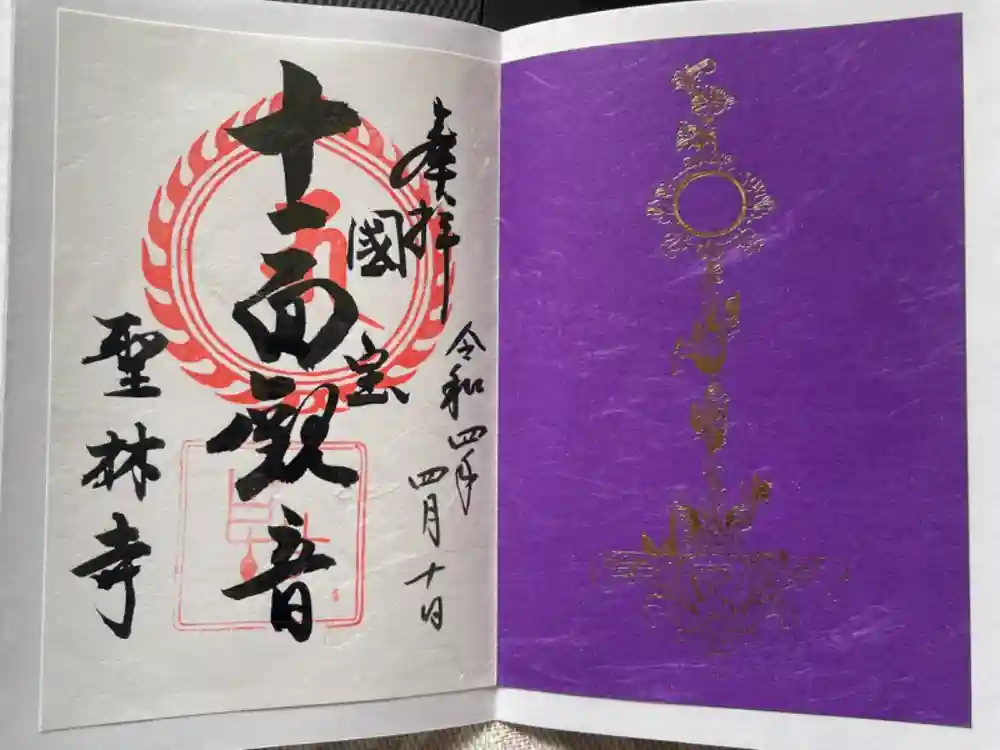 奉拝
令和四年
四月十日
國宝
十一面觀音
聖林寺